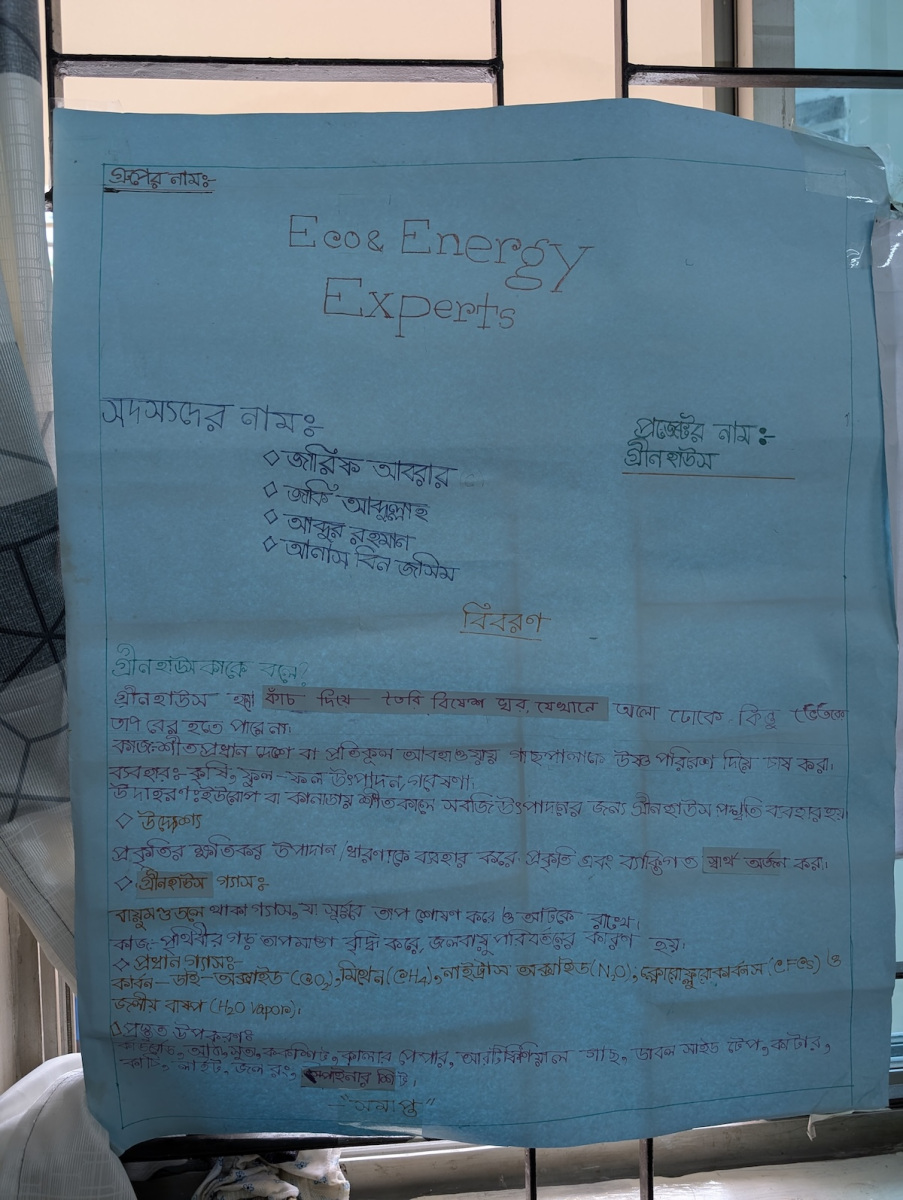 গ্রুপের নাম:-
Eco & Energy
Experts
সদস্যদের নাম:
◇ জারিফ আবরার
◇ জাকি আব্দুল্লাহ
◇ আব্দুর রহমান
◇ আনাস বিন জসিম
প্রজেক্টের নাম:-
গ্রীনহাউস
বিবরণ
গ্রীনহাউস কাকে বলে?
গ্রীনহাউস হল কাঁচ দিয়ে তৈরি বিশেষ ঘর, যেখানে আলো ঢোকে কিন্তু ভেতরের
তাপ বের হতে পারে না।
কাজ:শীতপ্রধান দেশে বা প্রতিকূল আবহাওয়ায় গাছপালাকে উষ্ণ পরিবেশ দিয়ে চাষ করা।
ব্যবহার:- কৃষি, ফুল-ফল উৎপাদন, গবেষণা।
উদাহরণ:ইউরোপ বা কানাডায় শীতকালে সবজি উৎপাদনের জন্য গ্রীনহাউস পদ্ধতি ব্যবহার হয়।
◇ উদ্দেশ্য
প্রকৃতির ক্ষতিকর উপাদান/ধারণাকে ব্যবহার করে প্রকৃতি এবং ব্যক্তিগত স্বার্থ অর্জন করা।
◇ গ্রীনহাউস গ্যাস:-
বায়ুমণ্ডলে থাকা গ্যাস, যা সূর্যের তাপ শোষণ করে ও আটকে রাখে।
কাজ-পৃথিবীর গড় তাপমাত্রা বৃদ্ধি করে, জলবায়ু পরিবর্তনের কারণ হয়।
◇ প্রধান গ্যাস:-
কার্বন-ডাই-অক্সাইড (CO₂), মিথেন (CH₄), নাইট্রাস অক্সাইড (N₂O), ক্লোরোফ্লুরোকার্বনস (CFCs) ও
জলীয় বাষ্প (H₂O Vapor)।
◇ প্রস্তুত উপকরণ:
ককশিট, কালার পেপার, আরটিফিশিয়াল গাছ, ডাবল সাইড টেপ, কাটার,
লাইট, জল রং, শিট।
-"সমাপ্ত"-